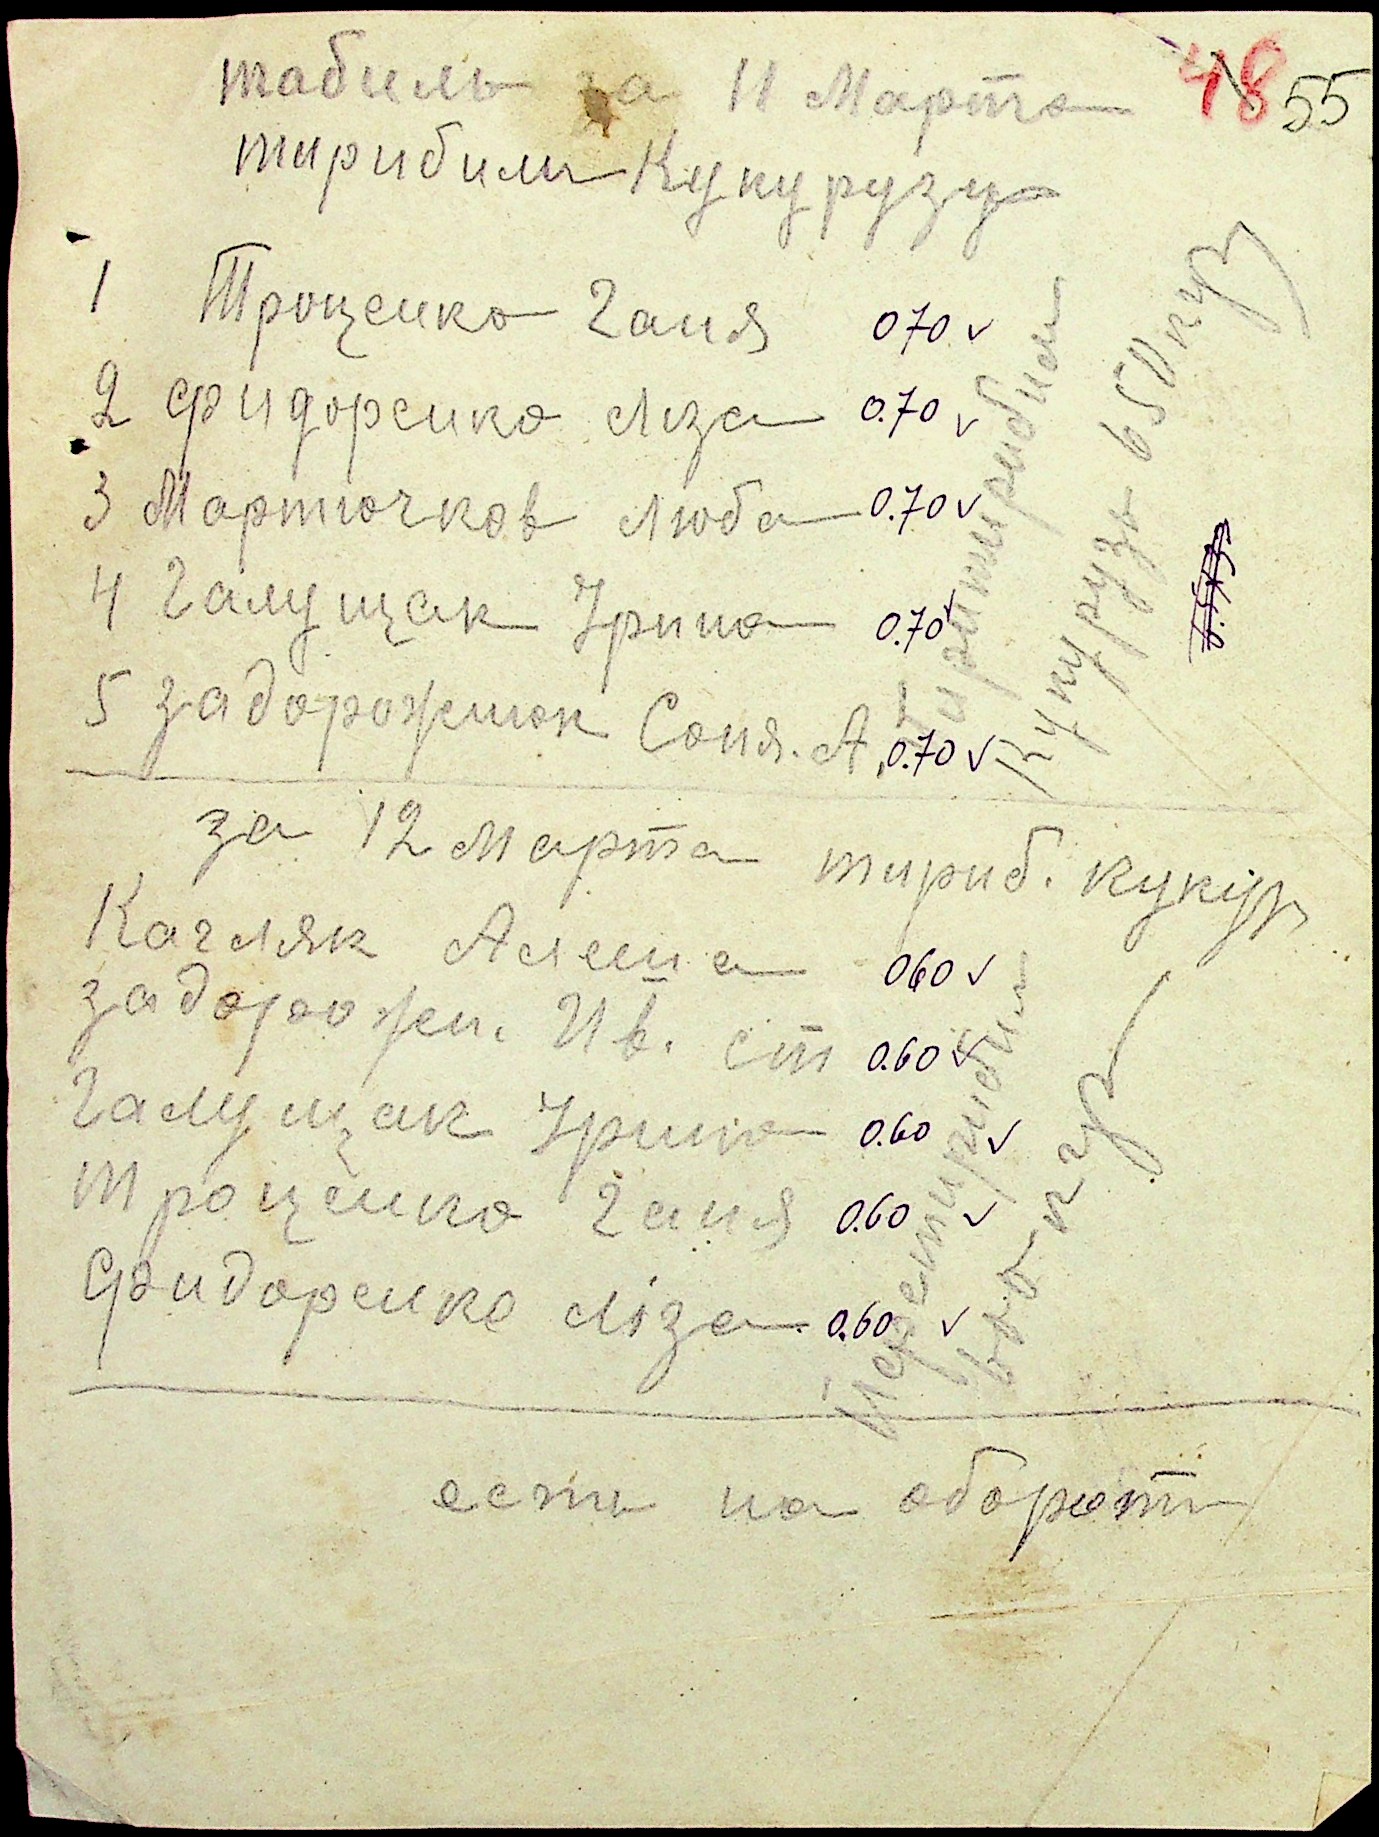 48 55
табиль за 11 Марта
тирибили Кукурузу
1 Троценко Ганя 070 v
2 Фидоренко Ліза 0.70 v
3 Мартючков Люба 0.70 v
4 Галущак Ірина 0.70 v
5 Задорожнюк Соня. А. 0.70 v
кукурузы 650 кгр
за 12 Марта тириб. кукур
Качляк Алеша 060 v
Задорожн. Ив. ст 0.60 v
Галущак Ірина 0.60 v
Троценко Ганя 0.60 v
Фидоренко Ліза 0.60 v
есть на обороти